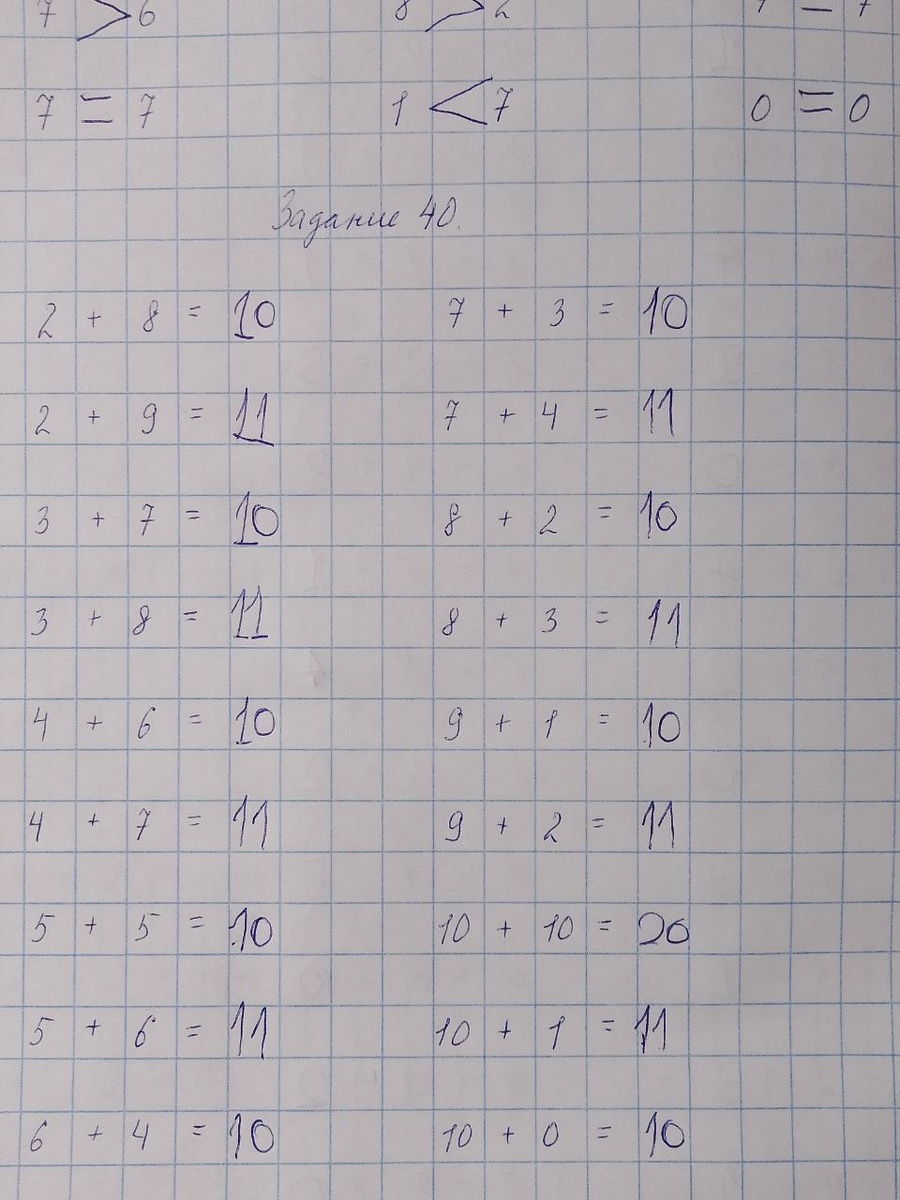 7 > 6 8 > 2
7 = 7 1 < 7 0 = 0
Задание 40.
2 + 8 = 10 7 + 3 = 10
2 + 9 = 11 7 + 4 = 11
3 + 7 = 10 8 + 2 = 10
3 + 8 = 11 8 + 3 = 11
4 + 6 = 10 9 + 1 = 10
4 + 7 = 11 9 + 2 = 11
5 + 5 = 10 10 + 10 = 20
5 + 6 = 11 10 + 1 = 11
6 + 4 = 10 10 + 0 = 10